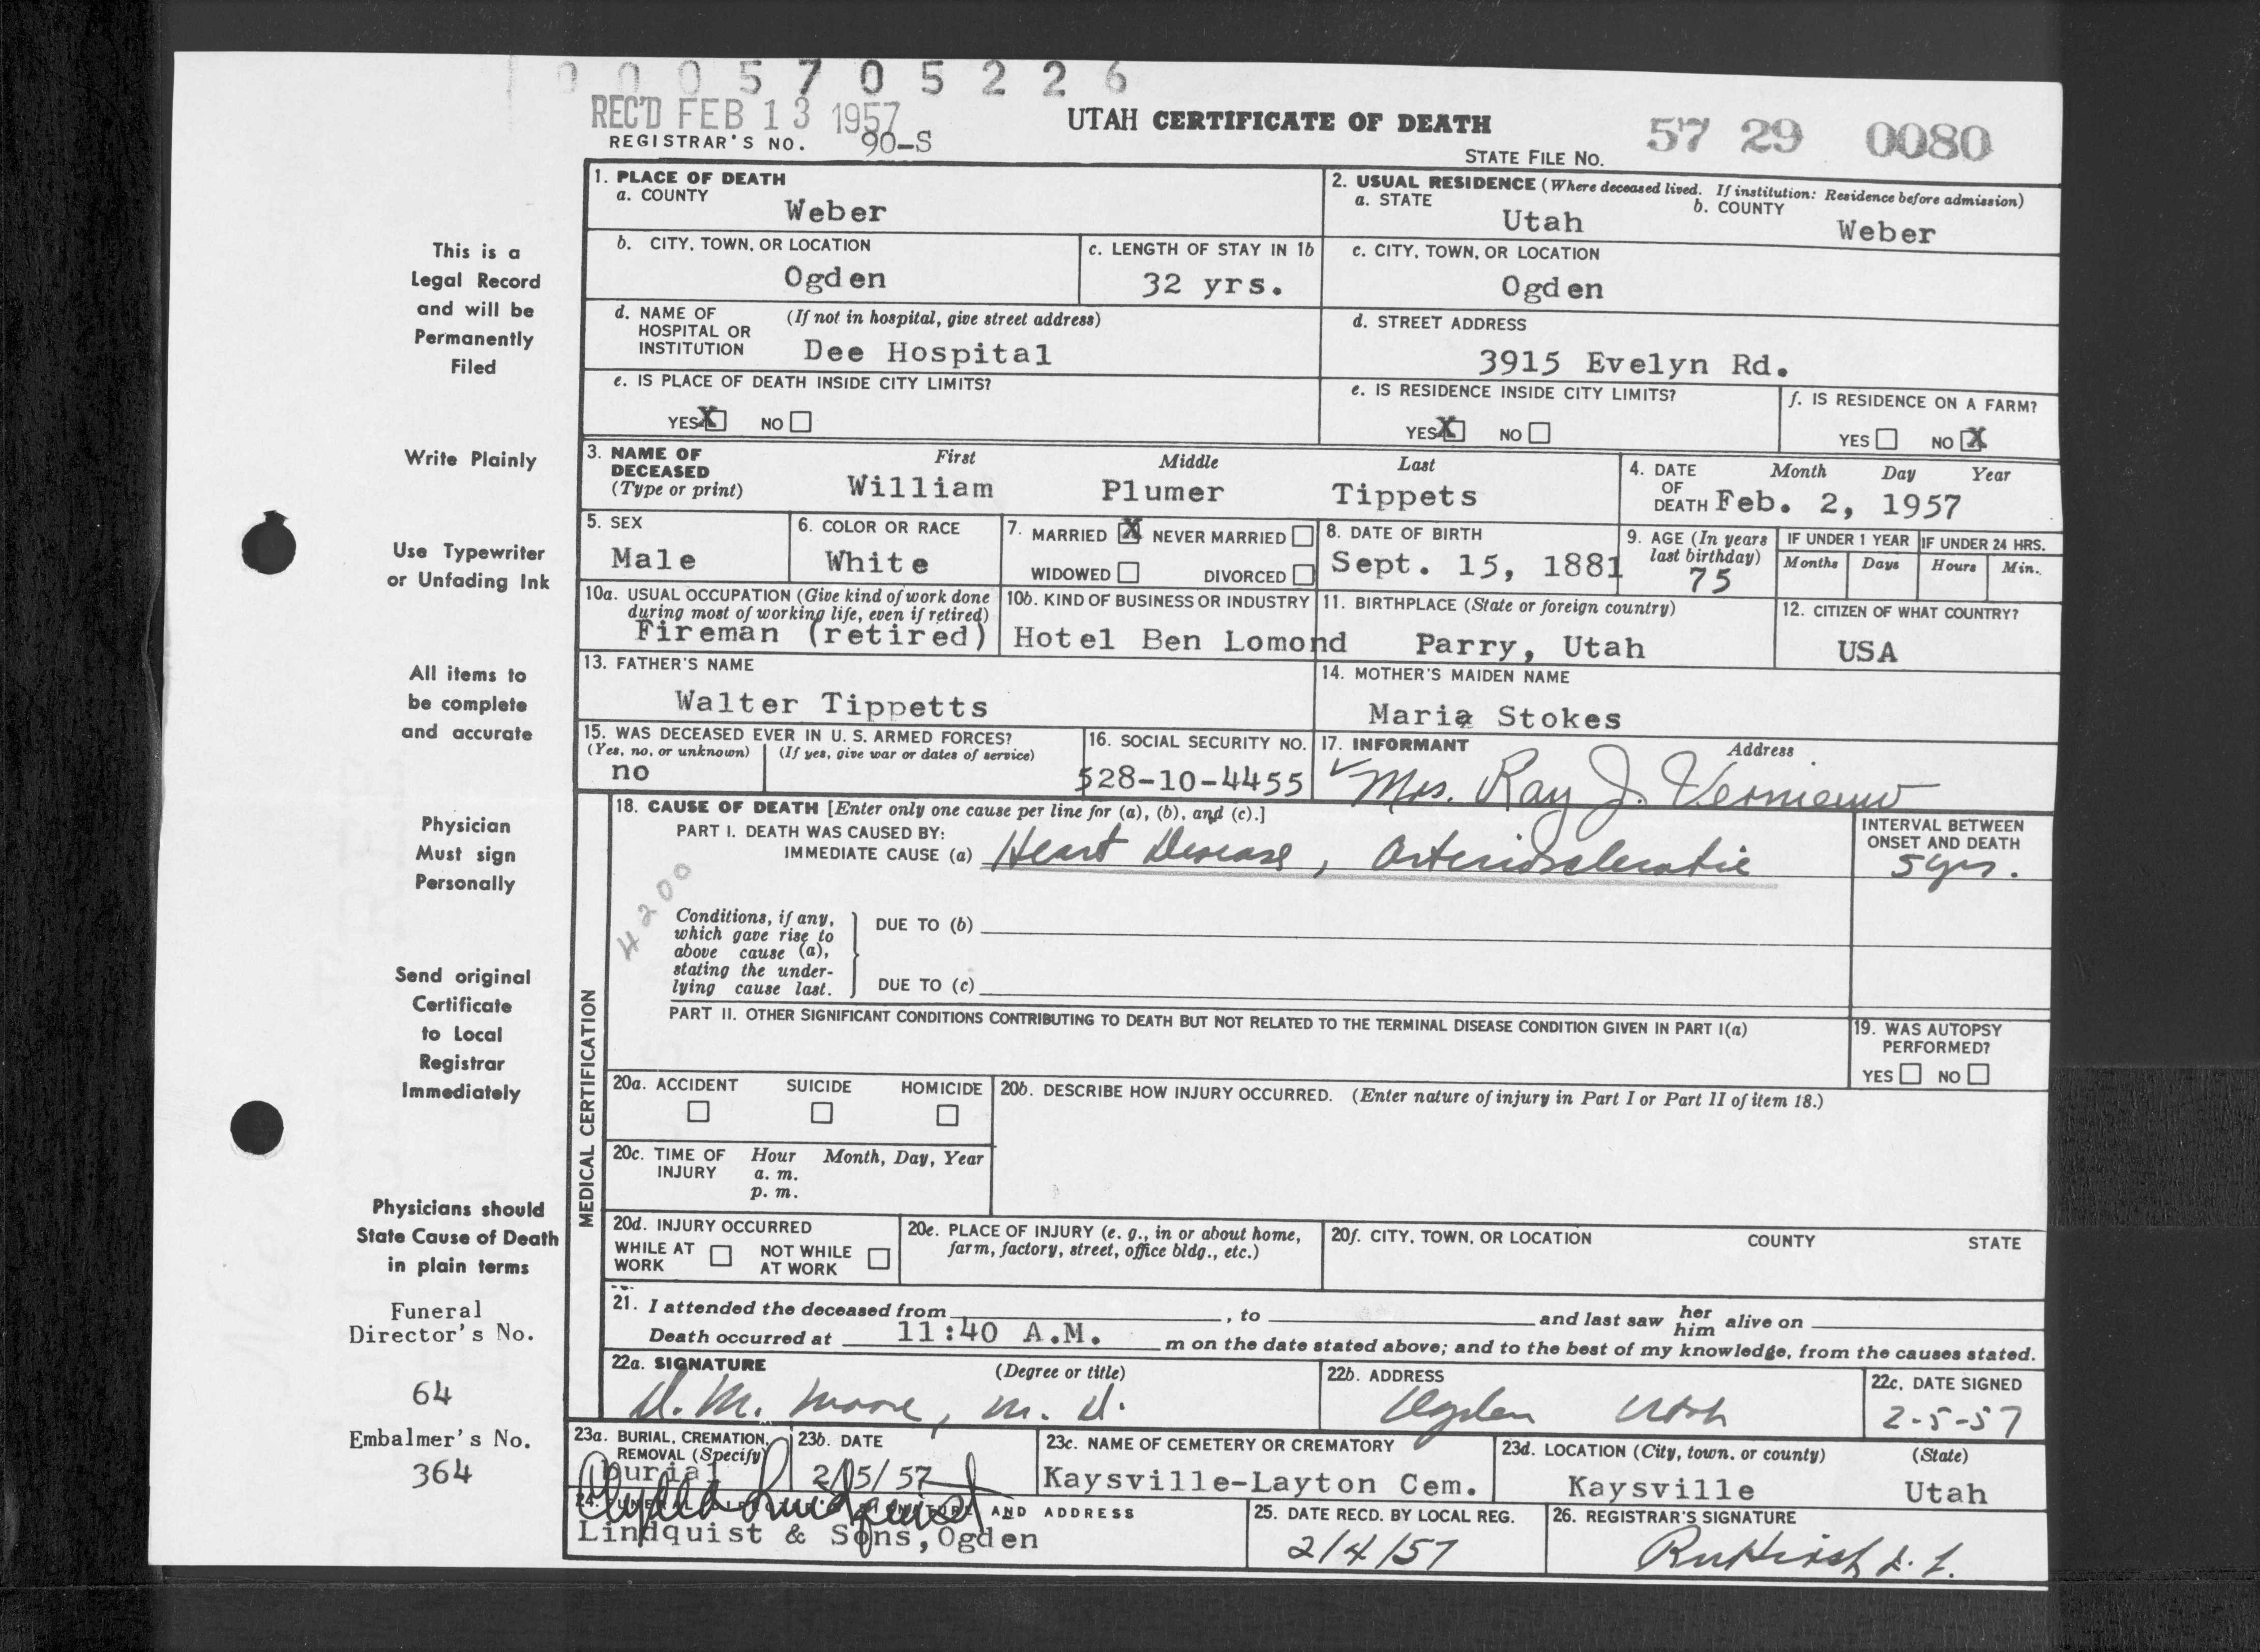 0005705226
REC'D FEB 13 1957
REGISTRAR'S NO. 90-S
UTAH CERTIFICATE OF DEATH
STATE FILE NO. 57 29 0080
This is a
Legal Record
and will be
Permanently
Filed
Write Plainly
Use Typewriter
or Unfading Ink
All items to
be complete
and accurate
Physician
Must sign
Personally
Send original
Certificate
to Local
Registrar
Immediately
Physicians should
State Cause of Death
in plain terms
Funeral
Director's No.
64
Embalmer's No.
364
1. PLACE OF DEATH
a. COUNTY
Weber
2. USUAL RESIDENCE (Where deceased lived. If institution: Residence before admission)
a. STATE
Utah
b. COUNTY
Weber
b. CITY, TOWN, OR LOCATION
Ogden
c. LENGTH OF STAY IN 1b
32 yrs.
c. CITY, TOWN, OR LOCATION
Ogden
d. NAME OF (If not in hospital, give street address)
HOSPITAL OR
INSTITUTION Dee Hospital
d. STREET ADDRESS
3915 Evelyn Rd.
e. IS PLACE OF DEATH INSIDE CITY LIMITS?
YES X NO
e. IS RESIDENCE INSIDE CITY LIMITS?
YES X NO
f. IS RESIDENCE ON A FARM?
YES NO X
3. NAME OF DECEASED
(Type or print)
First Middle Last
William Plumer Tippets
4. DATE OF DEATH
Month Day Year
Feb. 2, 1957
5. SEX
Male
6. COLOR OR RACE
White
7. MARRIED X NEVER MARRIED
WIDOWED DIVORCED
8. DATE OF BIRTH
Sept. 15, 1881
9. AGE (In years
last birthday)
75
IF UNDER 1 YEAR
Months Days
IF UNDER 24 HRS.
Hours Min.
10a. USUAL OCCUPATION (Give kind of work done
during most of working life, even if retired)
Fireman (retired)
10b. KIND OF BUSINESS OR INDUSTRY
Hotel Ben Lomond
11. BIRTHPLACE (State or foreign country)
Parry, Utah
12. CITIZEN OF WHAT COUNTRY?
USA
13. FATHER'S NAME
Walter Tippetts
14. MOTHER'S MAIDEN NAME
Maria Stokes
15. WAS DECEASED EVER IN U. S. ARMED FORCES?
(Yes, no, or unknown) (If yes, give war or dates of service)
no
16. SOCIAL SECURITY NO.
528-10-4455
17. INFORMANT Address
Mrs. Ray J. Vernieuw
MEDICAL CERTIFICATION
18. CAUSE OF DEATH [Enter only one cause per line for (a), (b), and (c).]
PART I. DEATH WAS CAUSED BY:
IMMEDIATE CAUSE (a) Heart Disease, Arteriosclerotic
INTERVAL BETWEEN
ONSET AND DEATH
5 yrs.
4200
Conditions, if any,
which gave rise to
above cause (a),
stating the under-
lying cause last.
DUE TO (b)
DUE TO (c)
PART II. OTHER SIGNIFICANT CONDITIONS CONTRIBUTING TO DEATH BUT NOT RELATED TO THE TERMINAL DISEASE CONDITION GIVEN IN PART I(a)
19. WAS AUTOPSY
PERFORMED?
YES NO
20a. ACCIDENT SUICIDE HOMICIDE
20b. DESCRIBE HOW INJURY OCCURRED. (Enter nature of injury in Part I or Part II of item 18.)
20c. TIME OF INJURY
Hour Month, Day, Year
a. m.
p. m.
20d. INJURY OCCURRED
WHILE AT WORK NOT WHILE AT WORK
20e. PLACE OF INJURY (e. g., in or about home,
farm, factory, street, office bldg., etc.)
20f. CITY, TOWN, OR LOCATION COUNTY STATE
21. I attended the deceased from , to and last saw her him alive on
Death occurred at 11:40 A.M. m on the date stated above; and to the best of my knowledge, from the causes stated.
22a. SIGNATURE (Degree or title)
D. M. Moore, M. D.
22b. ADDRESS
Ogden Utah
22c. DATE SIGNED
2-5-57
23a. BURIAL, CREMATION,
REMOVAL (Specify)
burial
23b. DATE
2/5/57
23c. NAME OF CEMETERY OR CREMATORY
Kaysville-Layton Cem.
23d. LOCATION (City, town, or county) (State)
Kaysville Utah
24. FUNERAL DIRECTOR'S SIGNATURE AND ADDRESS
Lindquist
Lindquist & Sons, Ogden
25. DATE RECD. BY LOCAL REG.
2/4/57
26. REGISTRAR'S SIGNATURE